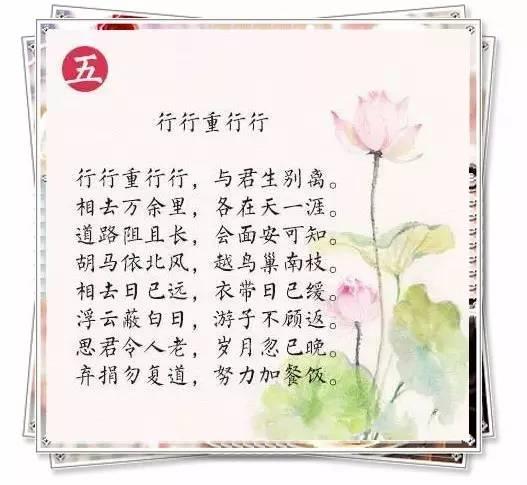 五
行行重行行
行行重行行，与君生别离。
相去万余里，各在天一涯。
道路阻且长，会面安可知。
胡马依北风，越鸟巢南枝。
相去日已远，衣带日已缓。
浮云蔽白日，游子不顾返。
思君令人老，岁月忽已晚。
弃捐勿复道，努力加餐饭。